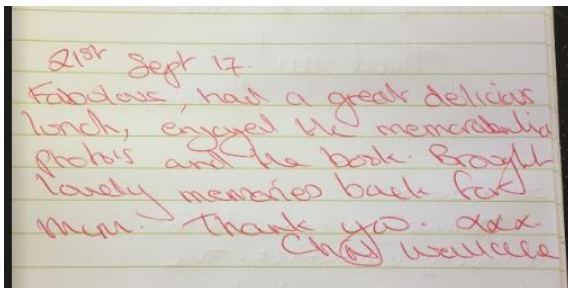 21st Sept 17.
Fabulous, had a great delicious
lunch, enjoyed the memorabilia
photo's and the book. Brought
lovely memories back for
mum. Thank you. xxx
Chris